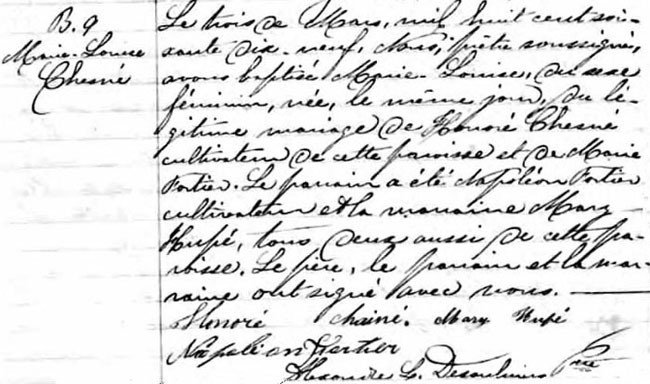 B. 9
Marie-Louise
Chesné
Le trois de Mars, mil huit cent soi-
xante dix-neuf, Nous, prêtre soussigné,
avons baptisé Marie-Louise, du sexe
féminin, née, le même jour, du lé-
gitime mariage de Honoré Chesné
cultivateur de cette paroisse et de Marie
Fortier. Le parrain a été Napoléon Fortier
cultivateur et la marraine Mary
Hupé, tous deux aussi de cette pa-
roisse. Le père, le parrain et la mar-
raine ont signé avec nous.
Honoré chainé. Mary Hupé
Napoléon Fortier
Alexandre L. Desaulniers Ptre